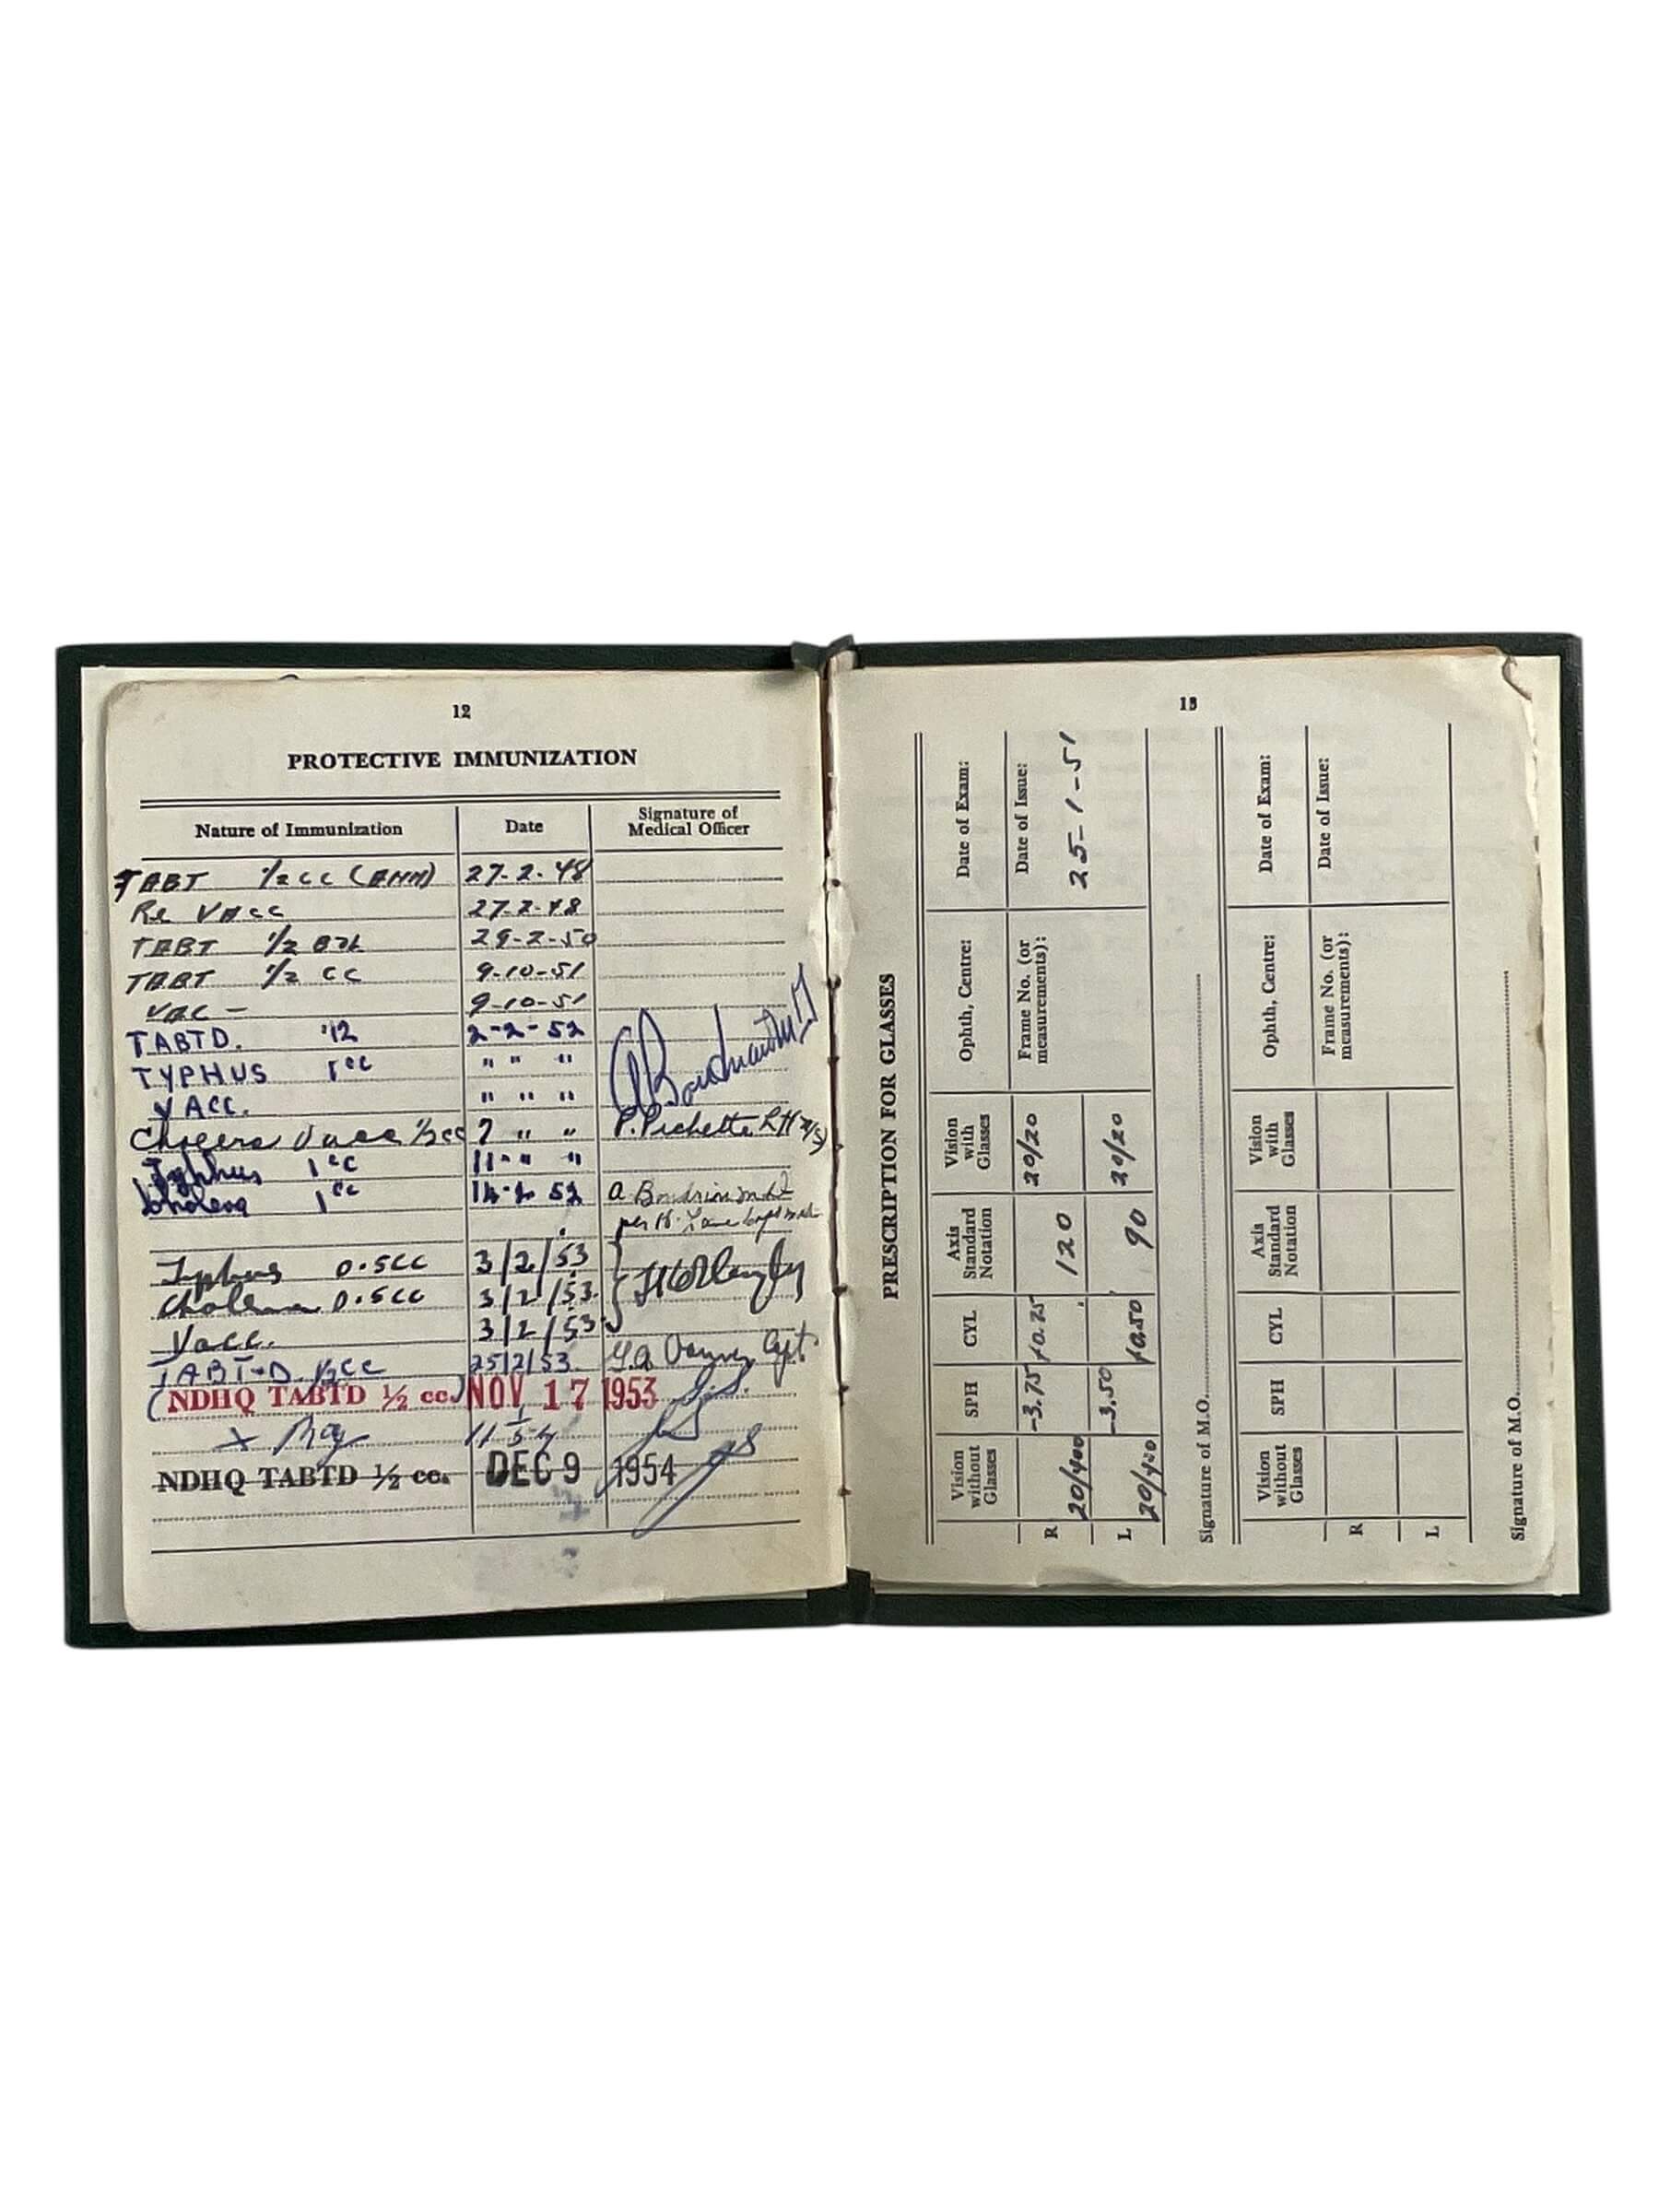 12
PROTECTIVE IMMUNIZATION
Nature of Immunization Date Signature of Medical Officer
TABT 1/2 CC 27-2-48
Re VACC 27-2-48
TABT 1/2 29-2-50
TABT 1/2 CC 9-10-51
VAC - 9-10-51
TABTD. 1/2 2-2-52
TYPHUS 1cc " " "
VACC. " " "
Cholera Vacc 1/2 cc 7 " " P. Pichette
Typhus 1cc 11 " "
Cholera 1cc 14-2 52
per
Typhus 0.5CC 3/2/53
Cholera 0.5CC 3/2/53.
Vacc. 3/2/53
TABT-D. 1/2CC 25/2/53. Capt.
(NDHQ TABTD ½ cc.) NOV 17 1953
X Ray
NDHQ TABTD ½ cc. DEC 9 1954
13
PRESCRIPTION FOR GLASSES
Vision without Glasses SPH CYL Axis Standard Notation Vision with Glasses Ophth, Centre: Date of Exam:
R 20/400 -3.75 +0.25 120 20/20 Frame No. (or measurements): Date of Issue:
25-1-51
L 20/450 -3.50 +0.50 90 20/20
Signature of M.O.
Vision without Glasses SPH CYL Axis Standard Notation Vision with Glasses Ophth, Centre: Date of Exam:
R Frame No. (or measurements): Date of Issue:
L
Signature of M.O.